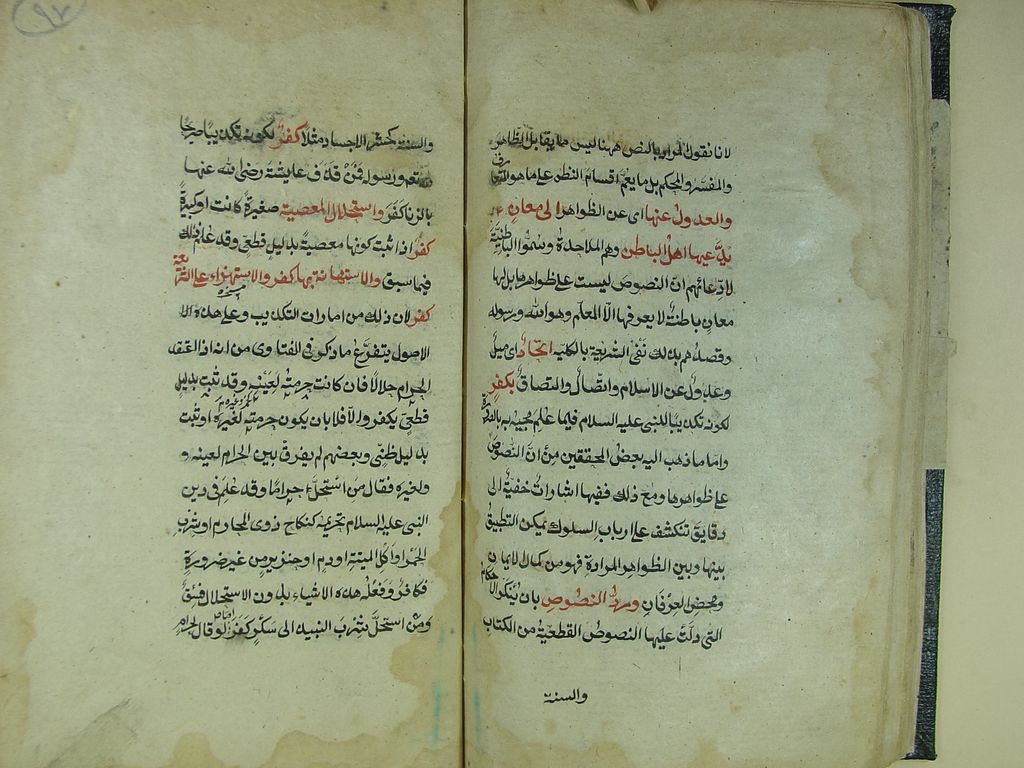 لانا نقول المراد بالنص ههنا ليس ما يقابل الظاهر
والمفسر والمحكم بل ما يعم اقسام النظم على ما هو المتعارف
والعدول عنها اى عن الظواهر الى معان
يدعيها اهل الباطن وهم الملاحدة وسموا الباطنية
لادعائهم ان النصوص ليست على ظواهرها بل لها
معان باطنة لا يعرفها الا المعلم وهو الله ورسوله
وقصدهم بذلك نفى الشريعة بالكلية الحاد اى ميل
وعدول عن الاسلام واتصال والتصاق بكفر
لكونه تكذيبا للنبى عليه السلام فيما علم مجيئه به بالضرورة
واما ما ذهب اليه بعض المحققين من ان النصوص
على ظواهرها ومع ذلك ففيها اشارات خفية الى
دقايق تنكشف على ارباب السلوك يمكن التطبيق
بينها وبين الظواهر المرادة فهو من كمال الايمان
ومحض العرفان ورد النصوص بان ينكر الاحكام
التى دلت عليها النصوص القطعية من الكتاب
والسنة
والسنة كحشر الاجساد مثلا كفر لكونه تكذيبا صريحا
لله تعم ورسوله فمن قذف عايشة رضى الله عنها
بالزنا كفر واستحلال المعصية صغيرة كانت او كبيرة
كفر اذا ثبت كونها معصية بدليل قطعى وقد علم ذلك
فيما سبق والاستهانة بها كفر والاستهزاء على الشريعة
كفر لان ذلك من امارات التكذيب وعلى هذه
الاصول يتفرع ما ذكر فى الفتاوى من انه اذا اعتقد
الحرام حلالا فان كانت حرمته لعينه وقد ثبت بدليل
قطعى يكفر والا فلا بان يكون حرمته لغيره او ثبت
بدليل ظنى وبعضهم لم يفرق بين الحرام لعينه و
ولغيره فقال من استحل حراما وقد علم فى دين
النبى عليه السلام تحريمه كنكاح ذوى المحارم او شرب
الخمر او اكل الميتة او دم او خنزير من غير ضرورة
فكافر وفعله هذه الاشياء بدون الاستحلال فسق
ومن استحل شرب النبيذ الى سكر كفر لو قال لحرام